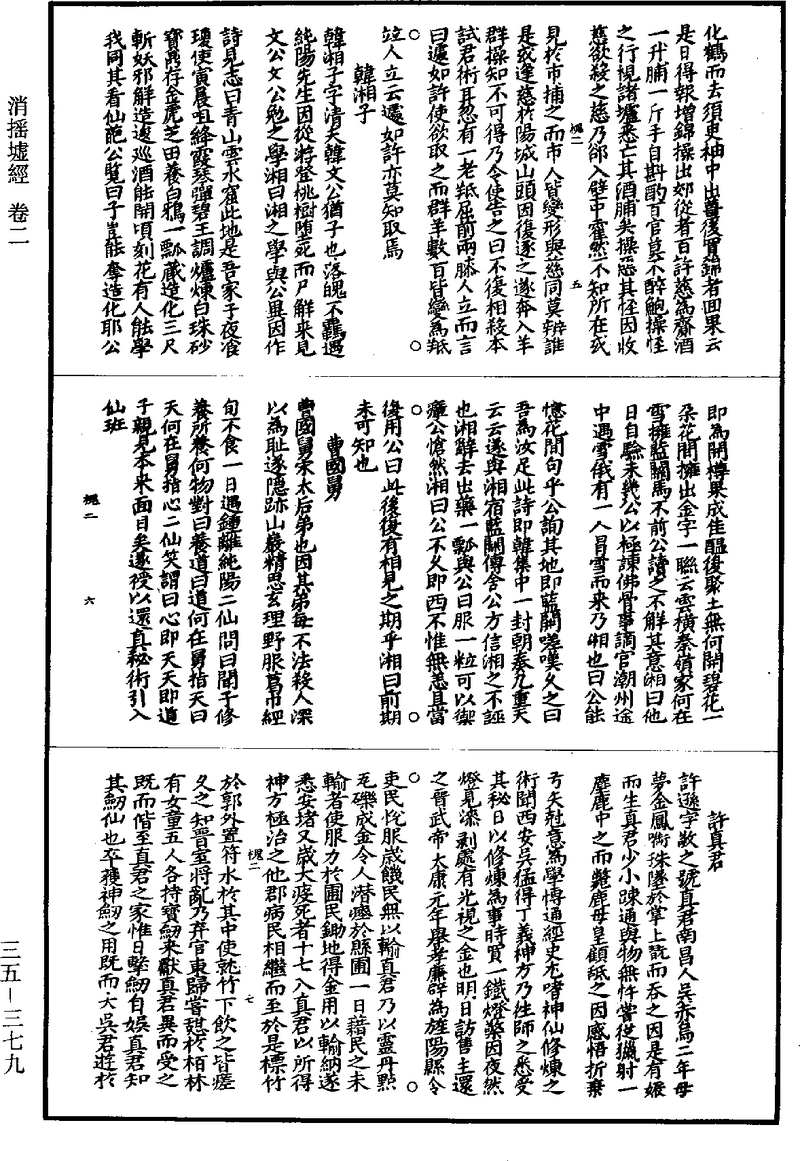 消摇墟經 卷二
三五－三七九
化鶴而去須臾袖中出蜀後買錦者回果云
是日得報增錦操出郊從者百許慈為齎酒
一升脯一斤手自斟酌百官莫不醉飽操怪
之行視諸壚悉亡其酒脯矣操惡其怪因收
慈欲殺之慈乃郤入壁中霍然不知所在或
槐二 五
見於市捕之而市人皆變形與慈同莫辨誰
是或逢慈於陽城山頭因復逐之遂奔入羊
群操知不可得乃令使告之曰不復相殺本
試君術耳忽有一老羝屈前兩膝人立而言
曰遽如許使欲取之而群羊數百皆變為羝
竝人立云遽如許亦莫知取焉
韓湘子
韓湘子字清夫韓文公猶子也落魄不羈遇
純陽先生因從游登桃樹墮死而尸解來見
文公文公勉之學湘曰湘之學與公異因作
詩見志曰青山雲水窟此地是吾家子夜飡
瓊使寅晨咀絳霞琴彈碧玉調爐煉白珠砂
寶鼎存金虎芝田養白鴉一瓢藏造化三尺
斬妖邪解造逡巡酒能開頃刻花有人能學
我同共看仙葩公覽曰子豈能奪造化耶公
即為開樽果成佳醞復聚土無何開碧花一
朵花間擁出金字一聯云雲橫秦嶺家何在
雪擁藍關馬不前公讀之不解其意湘曰他
日自驗未幾公以極諫佛骨事謫官潮州途
中遇雪俄有一人冒雪而來乃湘也曰公能
憶花間句乎公詢其地即藍關嗟嘆久之曰
吾為汝足此詩即韓集中一封朝奏九重天
云云遂與湘宿藍關傳舍公方信湘之不誣
也湘辭去出藥一瓢與公曰服一粒可以禦
瘴公愴然湘曰公不久即西不惟無恙且當
復用公曰此後復有相見之期乎湘曰前期
未可知也
曹國舅
曹國舅宋太后弟也因其弟每不法殺人深
以為恥遂隱跡山巖精思玄理野服葛巾經
旬不食一日遇鍾離純陽二仙問曰聞子修
養所養何物對曰養道曰道何在舅指天曰
天何在舅指心二仙笑謂曰心即天天即道
子親見本來面目矣遂授以還真秘術引入
仙班
槐二 六
許真君
許遜字敬之號真君南昌人吳赤烏二年母
夢金鳳啣珠墜於掌上翫而吞之因是有娠
而生真君少小踈通與物無忤嘗從獵射一
麈鹿中之而斃鹿母皇顧舐之因感悟折棄
弓矢尅意為學博通經史尤嗜神仙修煉之
術聞西安吳猛得丁義神方乃往師之悉受
其秘日以修煉為事時買一鐵燈檠因夜然
燈見漆剝處有光視之金也明日訪售主還
之晉武帝太康元年舉孝廉辟為旌陽縣令
吏民悅服歲饑民無以輸真君乃以靈丹點
瓦礫成金令人潛瘞於縣圃一日籍民之未
輸者使服力於圃民鋤地得金用以輸納遂
悉安堵又歲大疫死者十七八真君以所得
神方極治之他郡病民相繼而至於是標竹
槐二 七
於郭外置符水於其中使就竹下飲之皆瘥
久之知晉室將亂乃弃官東歸嘗憇於栢林
有女童五人各持寶劒來獻真君異而受之
既而偕至真君之家惟日擊劒自娛真君知
其劒仙也卒獲神劒之用既而大吳君遊於